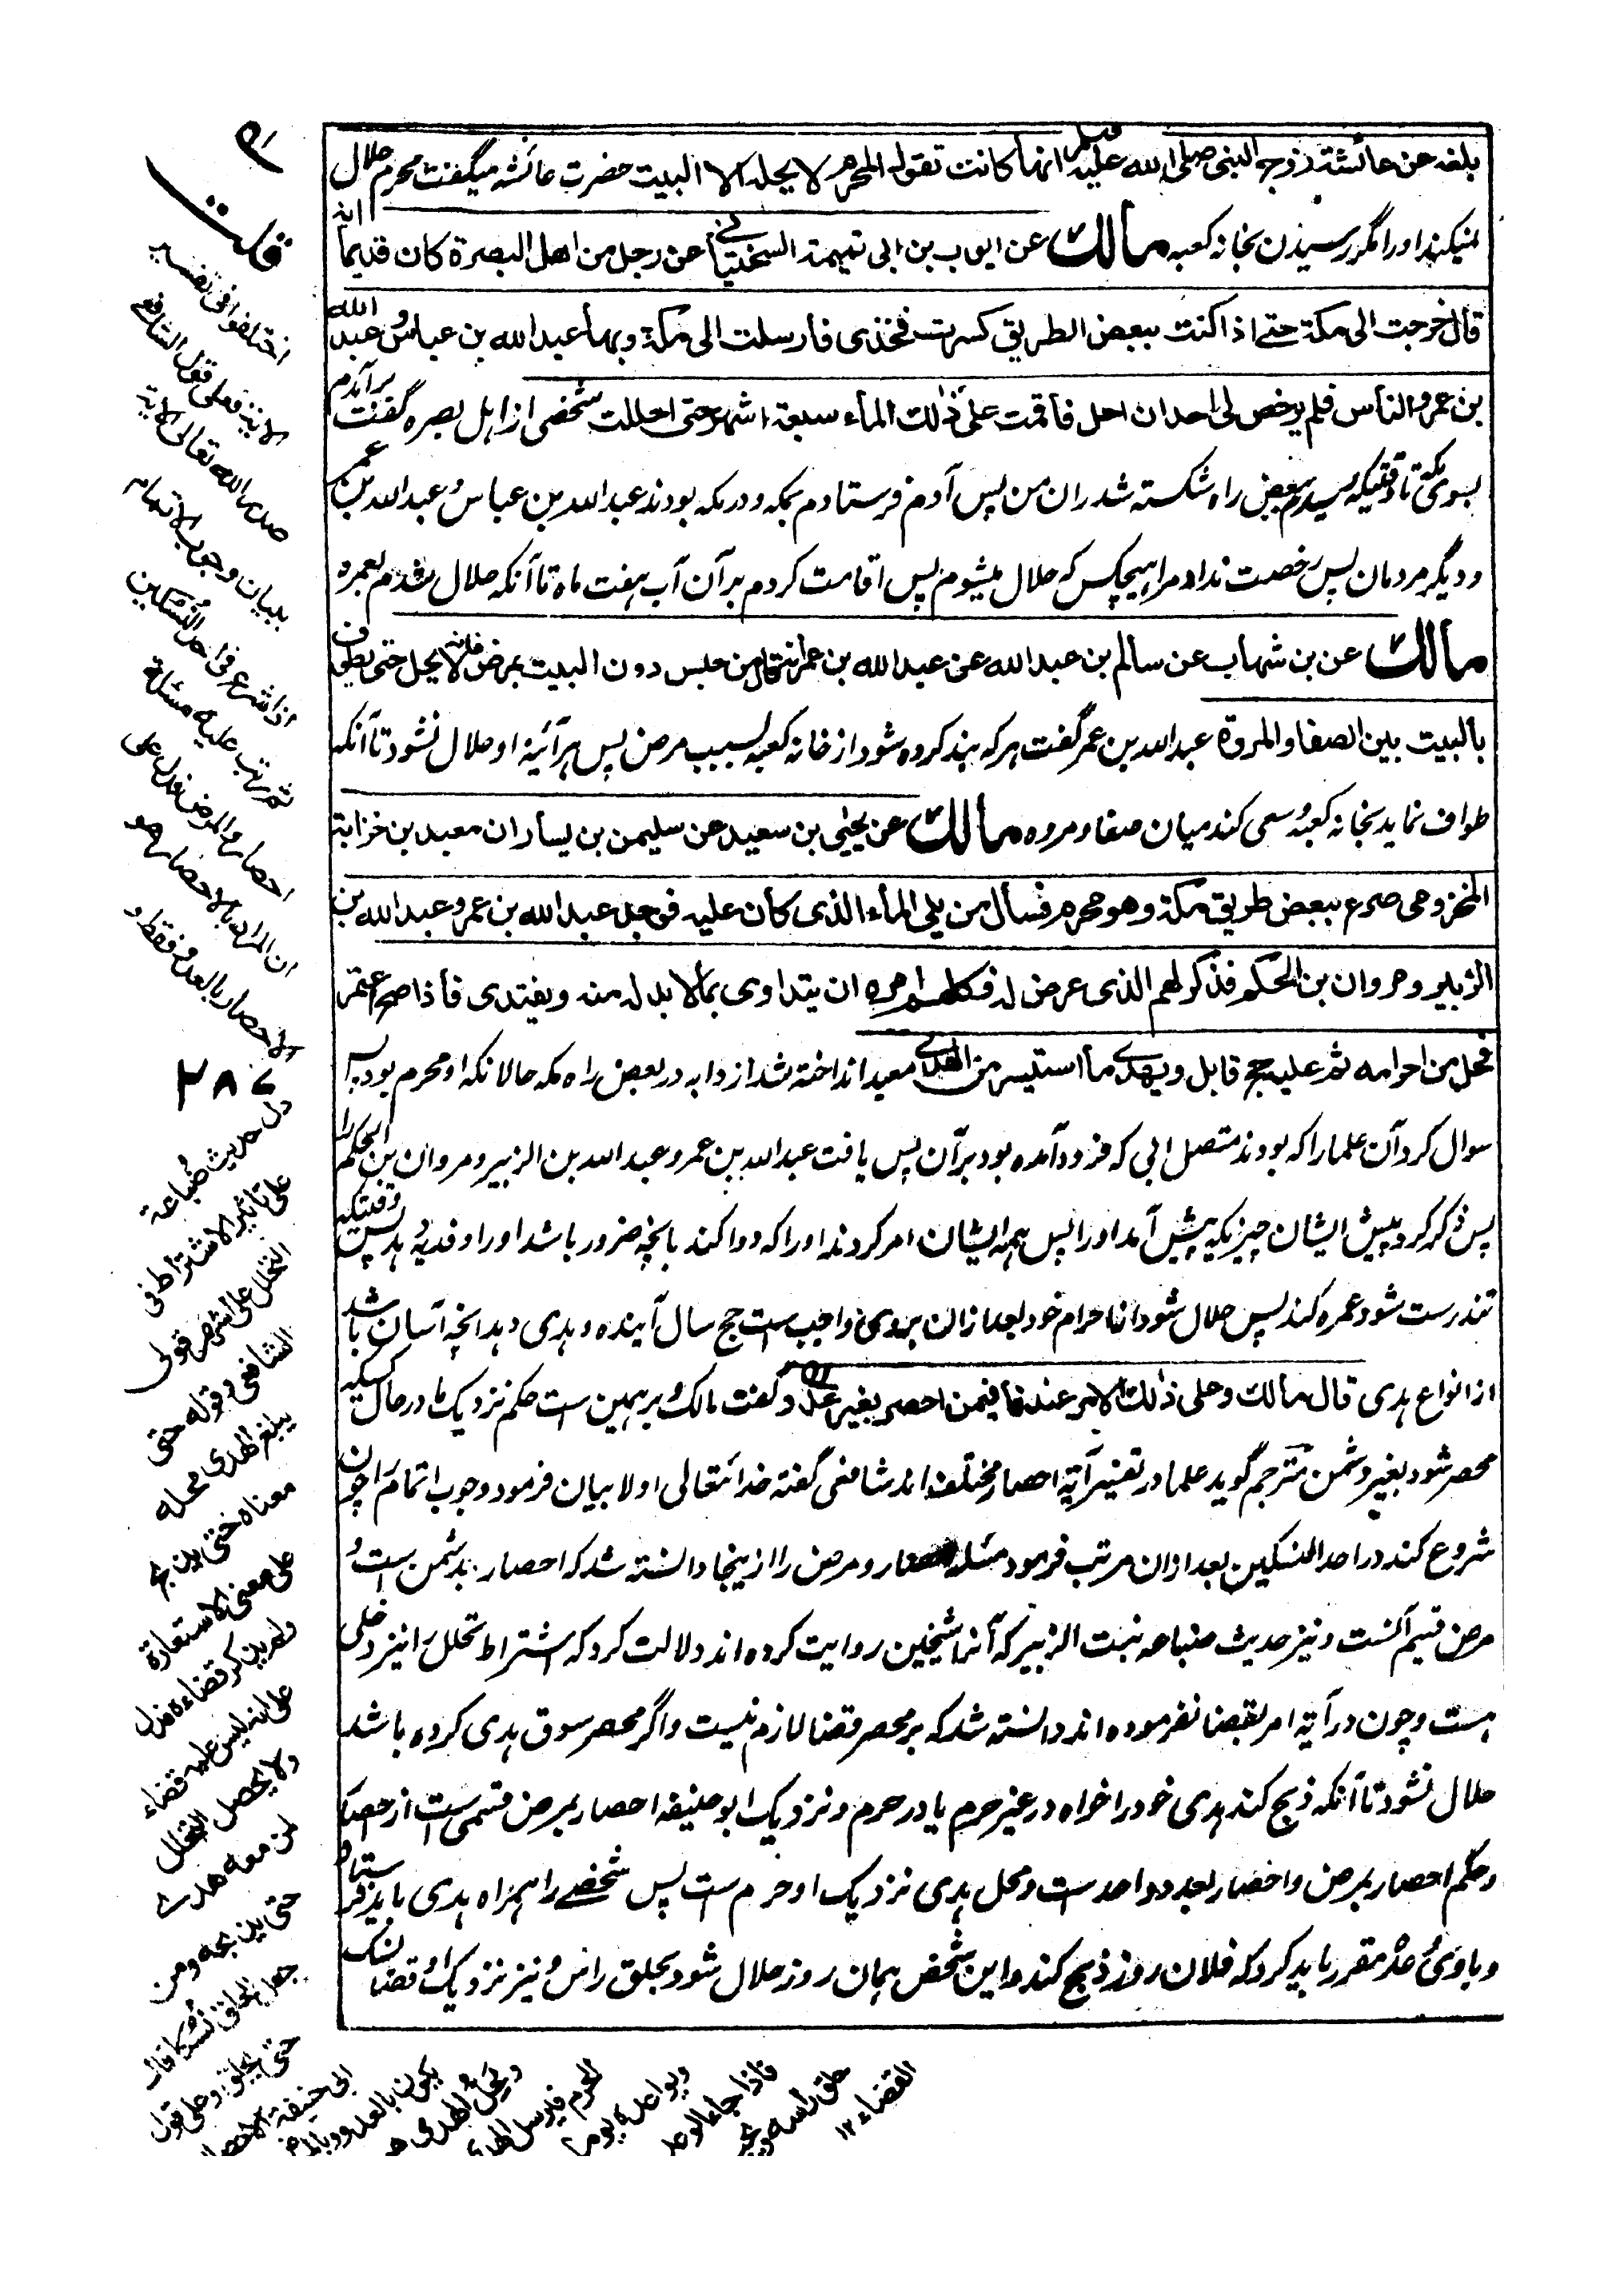 بلغه عن عائشة زوج النبى صلى الله عليه وسلم انها كانت تقول المحرم لا يحله الا البيت حضرت عائشه میگفت محرم حلال
نمیکند او را مگر رسیدن بخانه کعبه مالك عن ايوب بن ابى تميمة السختيانى عن رجل من اهل البصرة كان قديما انه
قال خرجت الى مكة حتى اذا كنت ببعض الطريق كسرت فخذى فارسلت الى مكة وبها عبد الله بن عباس وعبد الله
بن عمر والناس فلم يرخص لى احد ان احل فاقمت على ذلك الماء سبعة اشهر حتى احللت شخصی از اهل بصره گفت برآمدم
بسوی مکه تا وقتیکه رسیدم ببعض راه شکسته شد ران من پس آدم فرستادم بمکه و در مکه بودند عبدالله بن عباس و عبدالله بن عمر
و دیگر مردمان پس رخصت نداد مرا هیچکس که حلال میشوم پس اقامت کردم بر آن آب هفت ماه تا آنکه حلال شدم بعمره
مالك عن بن شهاب عن سالم بن عبد الله عن عبد الله بن عمر انه قال من حبس دون البيت بمرض فانه لا يحل حتى يطوف
بالبيت بين الصفا والمروة عبدالله بن عمر گفت هر که بند کرده شود از خانه کعبه بسبب مرض پس هرآئینه او حلال نشود تا آنکه
طواف نماید بخانه کعبه و سعی کند میان صفا و مروه مالك عن يحيى بن سعيد عن سليمن بن يسار ان معبد بن خزابة
المخزومى صرع ببعض طريق مكة وهو محرم فسال من يلى الماء الذى كان عليه فوجد عبد الله بن عمر وعبد الله بن
الزبير ومروان بن الحكم فذكر لهم الذى عرض له فكلهم امره ان يتداوى بما لا بد له منه ويفتدى فاذا صح اعتمر
فحل من احرامه ثم عليه حج قابل ويهدى ما استيسر من الهدى معبد انداخته شد از دابه در بعض راه مکه حالانکه او محرم بود پس
سوال کرد آن علما را که بودند متصل آبی که فرود آمده بود بر آن پس یافت عبدالله بن عمر و عبدالله بن الزبیر و مروان بن الحکم را
پس ذکر کرد پیش ایشان چیزیکه پیش آمد او را پس همه ایشان امر کردند او را که دوا کند بانچه ضرور باشد او را و فدیه بدهد پس وقتیکه
تندرست شود عمره کند پس حلال شود از احرام خود بعد ازان بروی واجب ست حج سال آینده و هدی دهد انچه آسان باشد
از انواع هدی قال مالك وعلى ذلك الامر عندنا فيمن احصر بغير عدو گفت مالک و بر همین ست حکم نزدیک ما در حال کسیکه
محصر شود بغیر دشمن مترجم گوید علما در تفسیر آیه احصار مختلف اند شافعی گفته خدا تعالی اولا بیان فرمود وجوب اتمام را چون
شروع کند در احد النسکین بعد ازان مرتب فرمود مسئله احصار و مرض را ازینجا دانسته شد که احصار بدشمن ست و
مرض قسیم آنست و نیز حدیث ضباعه بنت الزبیر که آنرا شیخین روایت کرده اند دلالت کرد که اشتراط تحلل را نیز دخلی
هست و چون در آیه امر بقضا نفرموده اند دانسته شد که بر محصر قضا لازم نیست و اگر محصر سوق هدی کرده باشد
حلال نشود تا آنکه ذبح کند هدی خود را خواه در غیر حرم یا در حرم و نزدیک ابو حنیفه احصار بمرض قسمی ست از احصار
و حکم احصار بمرض و احصار بعدو واحد ست و محل هدی نزدیک او حرم ست پس شخصے را همراه هدی باید فرستاد
و باوی وعده مقرر باید کرد که فلان روز ذبح کند و این شخص همان روز حلال شود بحلق راس و نیز نزدیک او قضا نسک
قلت
اختلفوا فى تفسير
الاية فعلى قول الشافعى
صدر الله تعالى الاية
ببيان وجوب الاتمام
اذا شرع فى احد النسكين
ثم رتب عليه مسئلة
احصار والمرض فدل على
ان المراد بالاحصار هو
الاحصار بالعدو فقط و
دل حديث ضباعة
على تاثير الاشتراط فى
التحلل على اشهر قولى
الشافعى وقوله حتى
يبلغ الهدى محله
معناه حتى يذبح
على معنى الاستعارة
ولم يذكر قضاء فدل
على انه ليس عليه قضاء
ولا يحصل التحلل
لمن معه هدى
حتى يذبحه ومن
جعل الحلق نسكا قال
حتى يحلق وعلى قول
ابى حنيفة الاحصار
يكون بالعدو وبالمرض
ومحل الهدى هو
الحرم فيرسل الهدى
ويواعده يوما
فاذا جاء الوعد
حلق راسه ويجب
القضاء ١٢